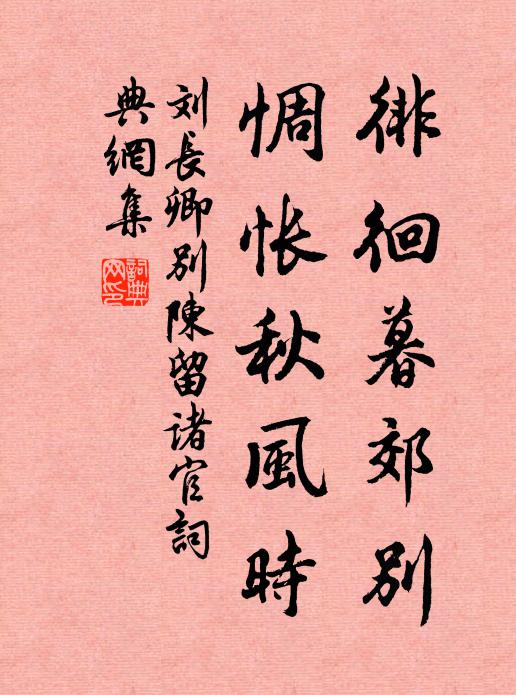 徘徊暮郊别
惆怅秋風時
刘長卿别陳留诸官詞
典網集
詞典
网印